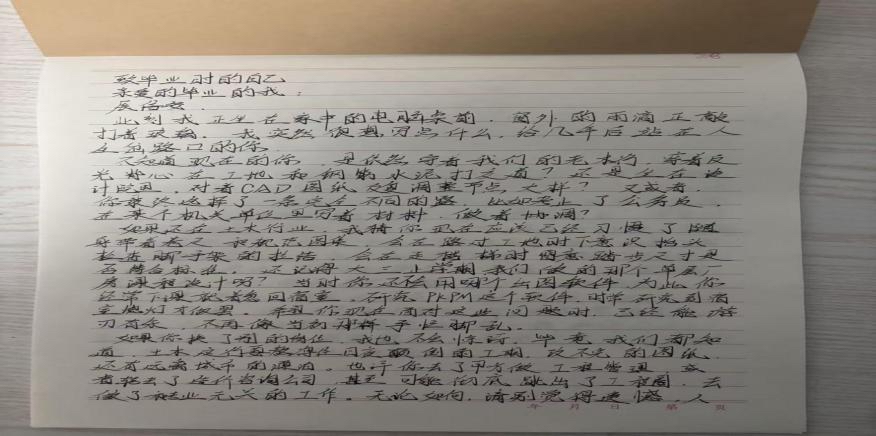 致毕业时的自己
亲爱的毕业的我：
展信安。
此刻我正坐在家中的电脑桌前，窗外的雨滴正敲
打着玻璃。我突然很想写点什么，给几年后站在人
生岔路口的你。
不知道现在的你，是依然守着我们的老本行，穿着反
光背心在工地和钢筋水泥打交道？还是坐在设
计院里，对着CAD图纸反复调整节点大样？又或者，
你最终选择了一条完全不同的路，比如考上了公务员，
在某个机关单位里写着材料，做着协调？
如果还在土木行业，我猜你现在应该已经习惯了随
身带着卷尺和规范图集，会在路过工地时下意识抬头
检查脚手架的搭法，会在走楼梯时留意踏步尺寸是
否符合标准。还记得大三上学期我们做的那个单层厂
房课程设计吗？当时你还不会用哪个出图软件，为此你
经常下课就着急回宿舍，研究PKPM这个软件，时常研究到宿
舍熄灯才做罢。希望你现在面对这些问题时，已经能游
刃有余，不再像当初那样手忙脚乱。
如果你换了别的岗位，我也不会惊讶。毕竟我们都知
道，土木定
颠倒的工期，改不完的图纸，
还有远离城市的
。也许你去了甲方做工程管理，或
者转去了造价咨询公司，甚至可能彻底跳出了工程圈，去
做了和专业无关的工作。无论如何，请别觉得遗憾，人
年 月 日 第 页